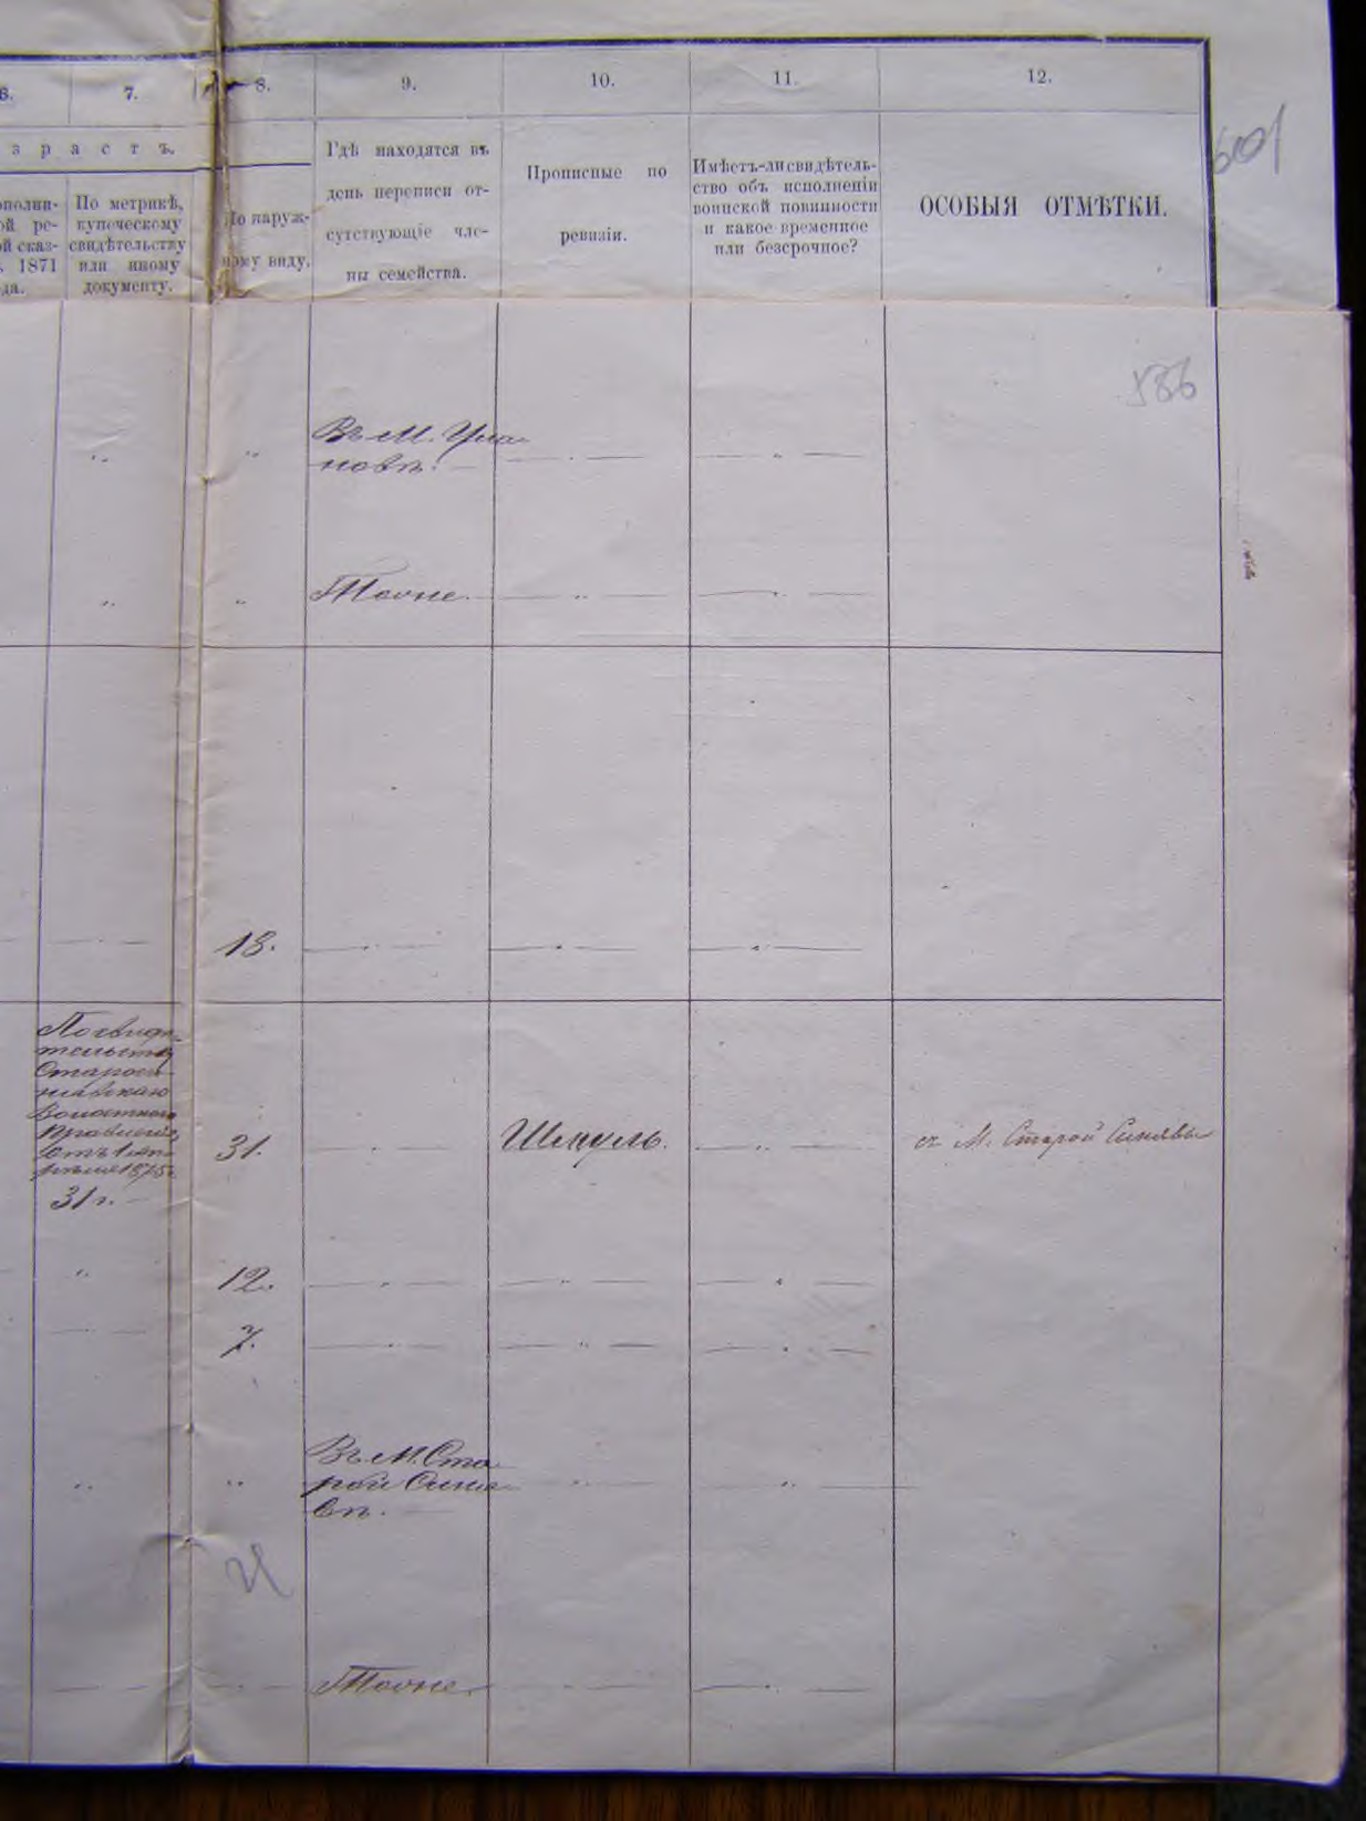 6. 7. 8. 9. 10. 11. 12.
з р а с т ъ.
ополни-
ой ре-
ой сказ-
1871
да.
По метрикѣ,
купеческому
свидѣтельству
или иному
документу.
По наруж-
ному виду.
Гдѣ находятся въ
день переписи от-
сутствующіе чле-
ны семейства.
Прописные по
ревизіи.
Имѣетъ-ли свидѣтель-
ство объ исполненіи
воинской повинности
и какое временное
или безсрочное?
ОСОБЫЯ ОТМѢТКИ.
601
586
Въ М. Ула-
новѣ.
Тоже.
18.
По свидѣ-
тельству
Староси-
нявскаго
Волостного
Правленія
отъ 1 ап-
рѣля 1875 г.
31 г.
31.
Шекуль.
съ М. Старой Синявы
12.
7.
Въ М. Ста
рой Синя
вѣ.
Тоже.